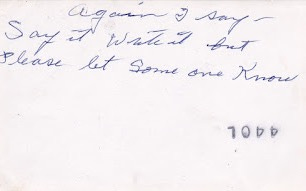 Again I say -
Say it Write it but
Please let Some one Know
1044